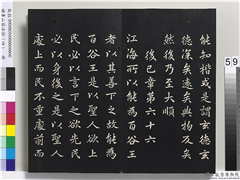 能知楷式是謂玄德玄
德深矣遠矣與物反矣
然後乃至大順
後已章第六十六
江海所以能為百谷王
者以其善下之故能為
百谷王是以聖人欲上
民必以言下之欲先民
必以身後之是以聖人
處上而民不重處前而
59